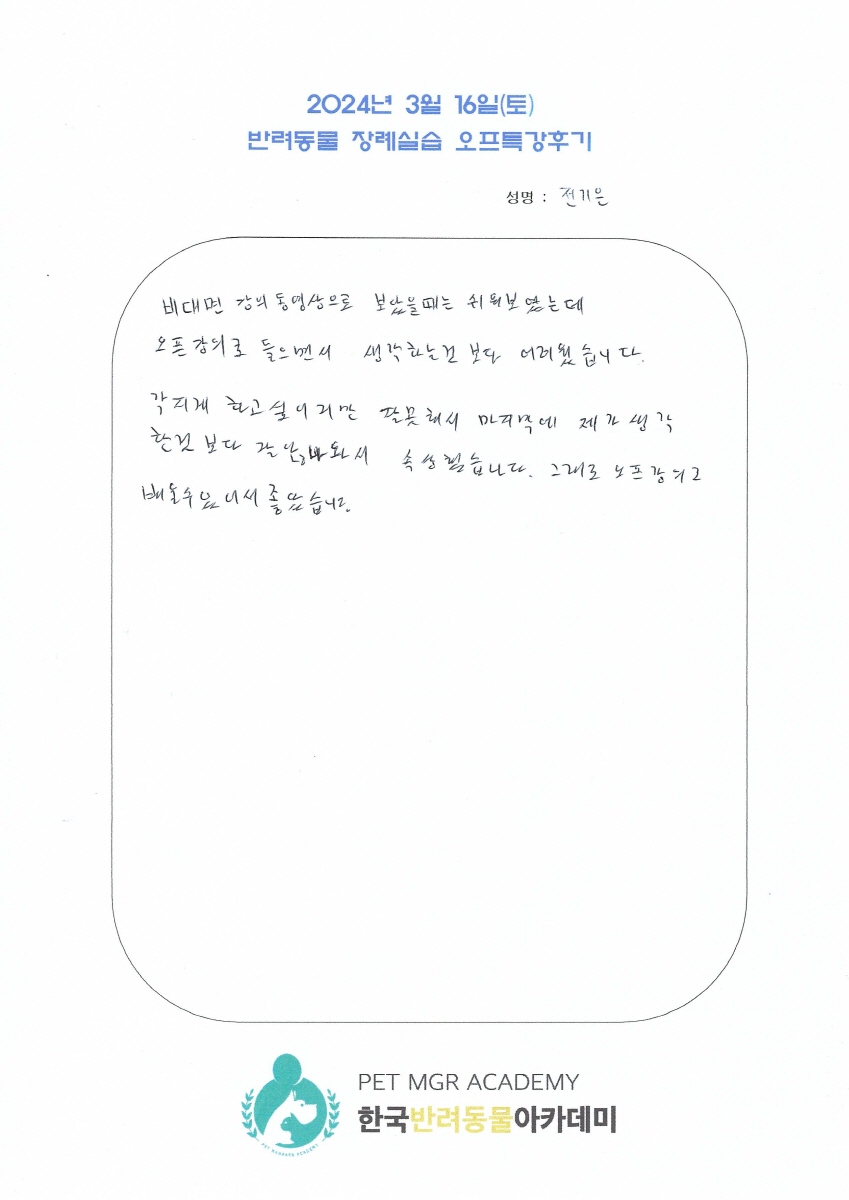 2024년 3월 16일(토)
반려동물 장례실습 오프특강후기
성명 : 전기은
비대면 강의 동영상으로 보았을때는 쉬워보였는데
오프강의로 들으면서 생각하는건 보다 어려웠습니다.
각지게 하고 싶어지만 잘못해서 마지막에 제가 생각
한것 보다 잘 안 나와서 속상했습니다. 그래도 오프강의로
배울수 있어서 좋았습니다.
PET MGR ACADEMY
한국반려동물아카데미
PET MANAGER ACADEMY